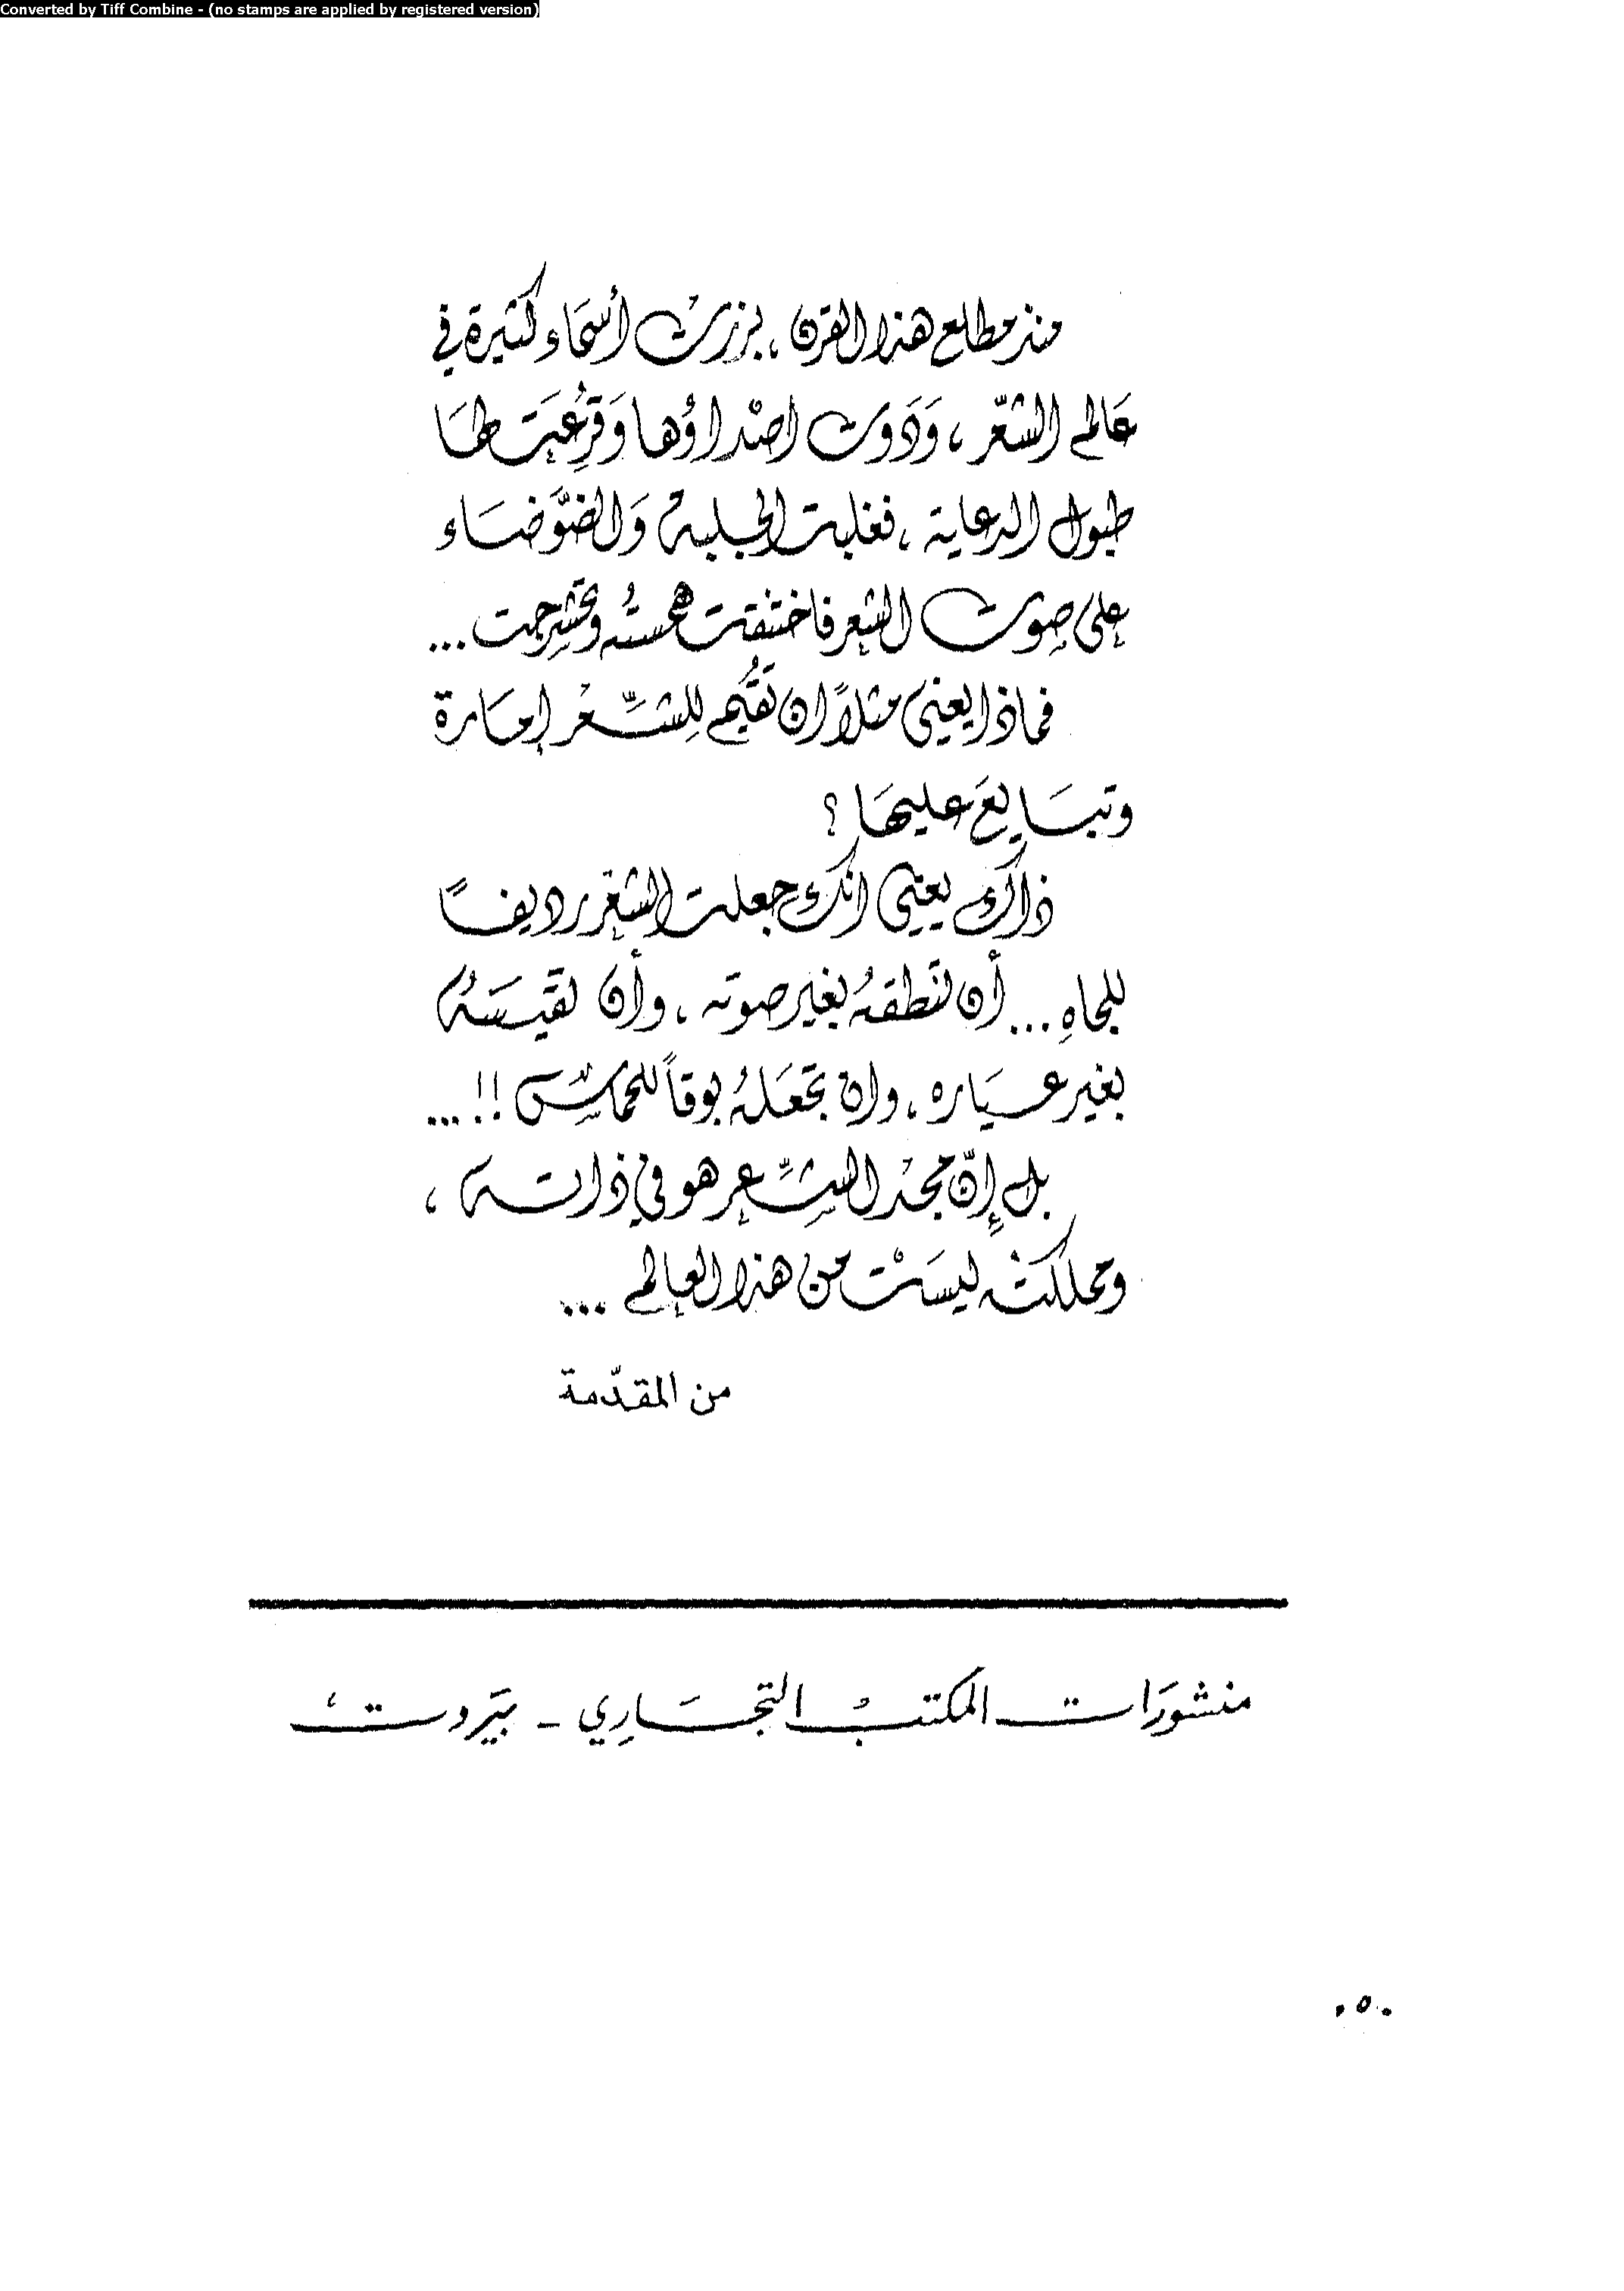 Converted by Tiff Combine - (no stamps are applied by registered version)
منذ مطلع هذا القرن ، برزتْ أسمَاء كثيرة في
عَالم الشّعر ، وَدَوت اصْداؤها وَقرِعُيَت لهَا
طبول الدعاية ، فغلبت الجلبة وَالضوَّضَاء
على صوت الشعر فاختنقت همسَتُه وتحشرجت ...
فماذا يعني مثلاً ان تقُيم للِشِّعْر إمَارة
وتبَايعَ عليهَا ؟
ذاك يعني انك جعلت الشعْر رديفاً
للجاهِ ... أن تنطقهُ بغير صوته ، وأن تقيسَهُ
بغير عيَاره ، وان تجعَلهُ بوقاً للحماسْ !! ...
بل إنّ مجْد الشِّعر هو في ذاته ،
ومملكته ليسَتْ من هذا العالم ...
من المقدّمة
منشورَات المكتبْ التجَاري - بيَروت
٠٥٠